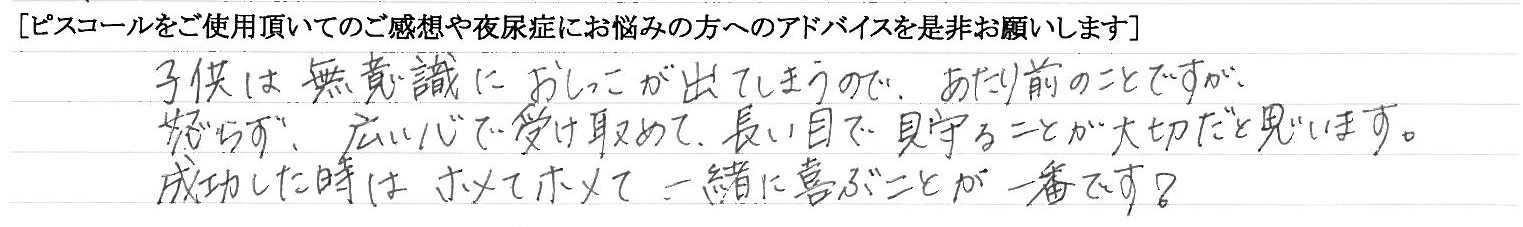 [ピスコールをご使用頂いてのご感想や夜尿症にお悩みの方へのアドバイスを是非お願いします]
子供は無意識におしっこが出てしまうので、あたり前のことですが、
怒らず、広い心で受け取めて、長い目で見守ることが大切だと思います。
成功した時はホメてホメて一緒に喜ぶことが一番です?